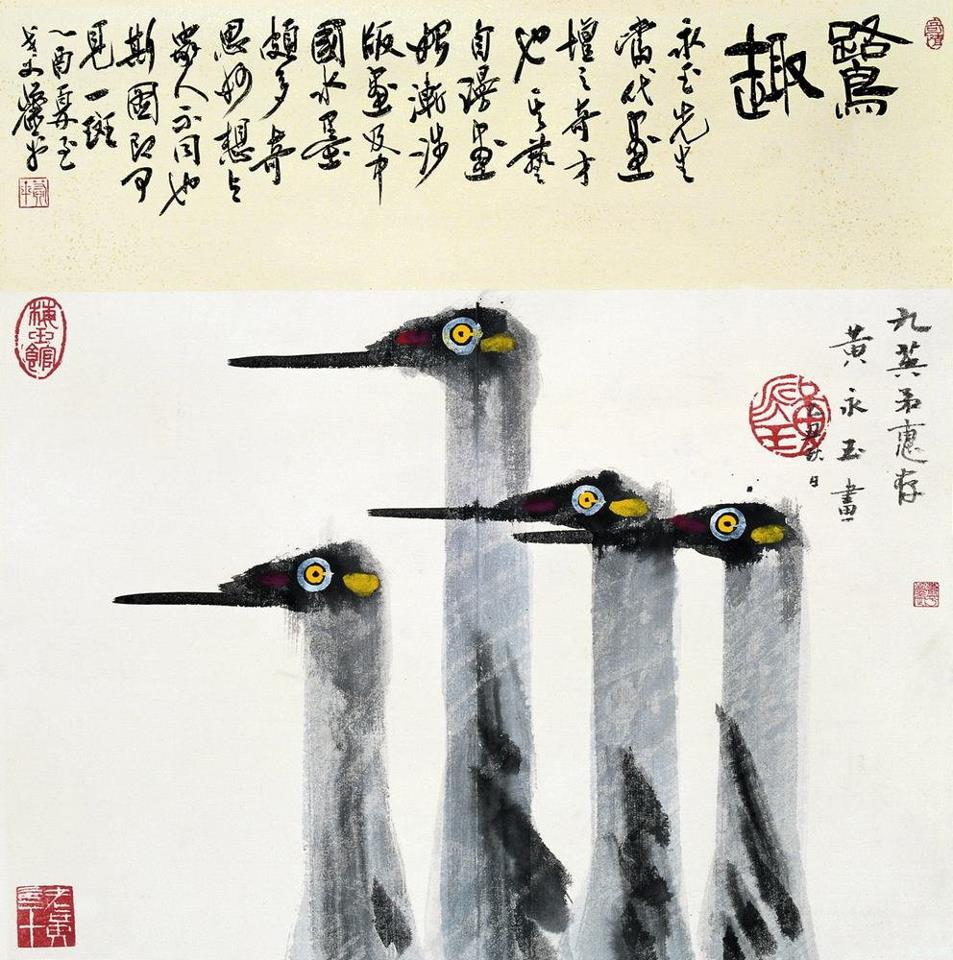 鷺
趣
永玉先生
當代畫
壇之奇才
也其藝
自漫畫
始漸涉
版畫及中
國水墨
頗多奇
思妙想与
眾人不同也
斯圖即可
見一斑
乙酉夏至
九英弟惠存
黃永玉畫
乙丑秋日